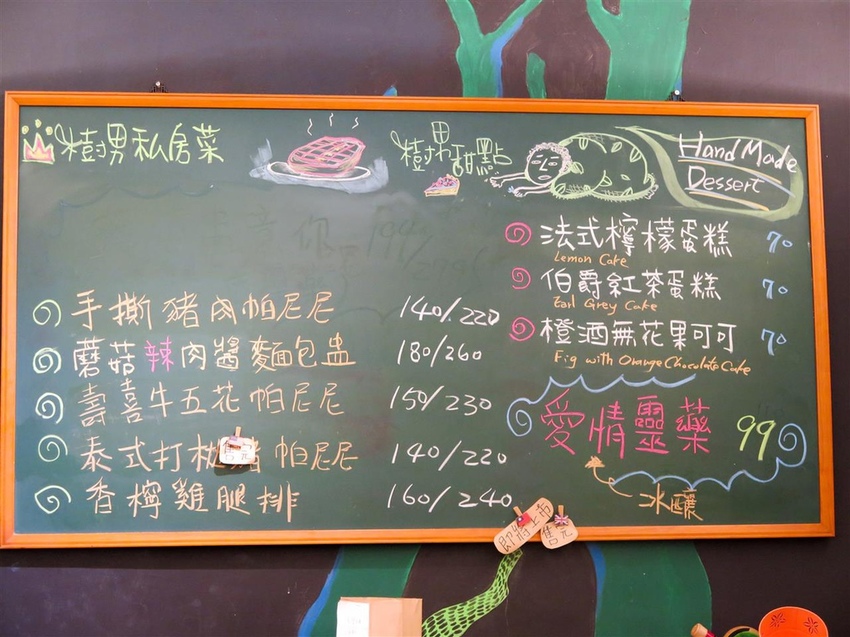 樹男私房菜
手撕豬肉帕尼尼 140/220
蘑菇辣肉醬麵包盅 180/260
壽喜牛五花帕尼尼 150/230
泰式打拋豬帕尼尼 140/220
售完
香檸雞腿排 160/240
樹果甜點
Hand Made
Dessert
法式檸檬蛋糕 70
Lemon Cake
伯爵紅茶蛋糕 70
Earl Grey Cake
橙酒無花果可可 70
Fig with Orange Chocolate Cake
愛情靈藥 99
冰釀
即將上市
售完